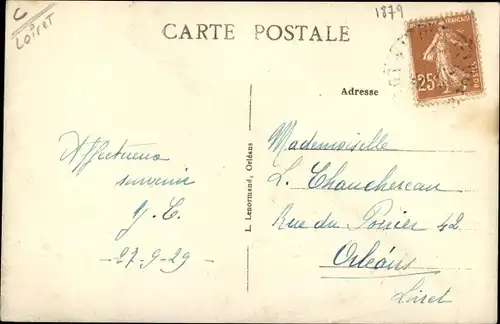 Loiret
CARTE POSTALE
1879
25
POSTES
Adresse
L. Lenormand, Orléans
Affectueux
souvenir
27-9-29
Mademoiselle
L. Chauchereau
Rue du Poirier 42
Orléans
Loiret